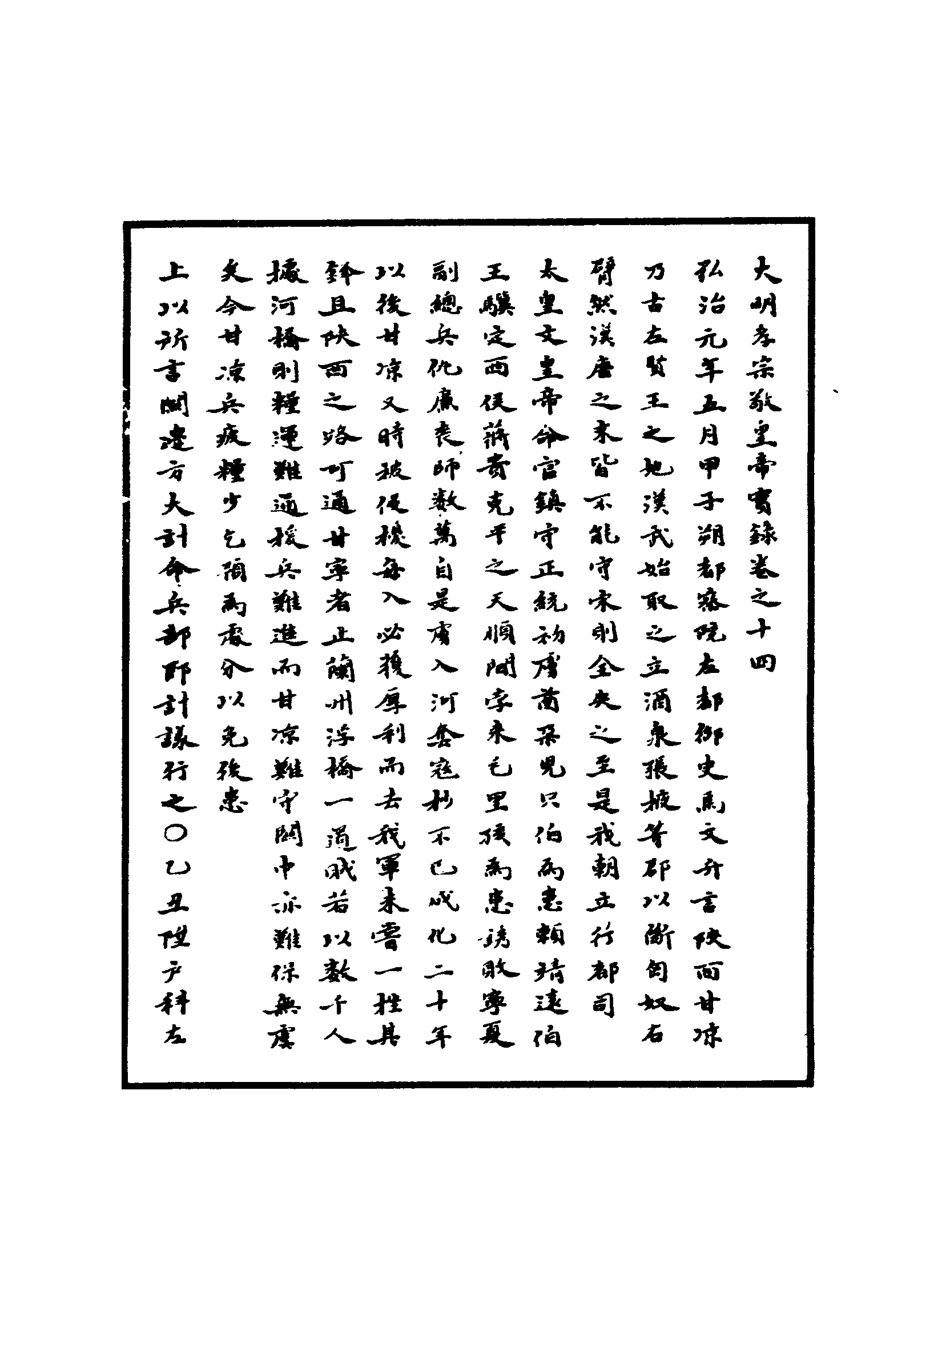 大明孝宗敬皇帝實錄卷之十四
弘治元年五月甲子朔都察院左都御史馬文升言陝西甘凉
乃古左賢王之地漢武始取之立酒泉張掖等郡以斷匈奴右
臂然漢唐之末皆不能守宋則全失之至是我朝立行都司
太皇文皇帝命官鎮守正統初虜酋朶兒只伯為患賴靖遠伯
王驥定西侯蔣貴克平之天順間孛來乇里孩為患誘敗寧夏
副總兵仇廉喪師數萬自是虜入河套寇抄不已成化二十年
以後甘凉又時被侵擾每入必獲厚利而去我軍未嘗一挫其
鋒且陝西之路可通甘寧者止蘭州浮橋一道賊若以數千人
據河橋則糧運難通援兵難進而甘凉難守關中亦難保無虞
矣今甘凉兵疲糧少乞預為處分以免後患
上以所言關邊方大計命兵部即計議行之〇乙丑陞戶科左